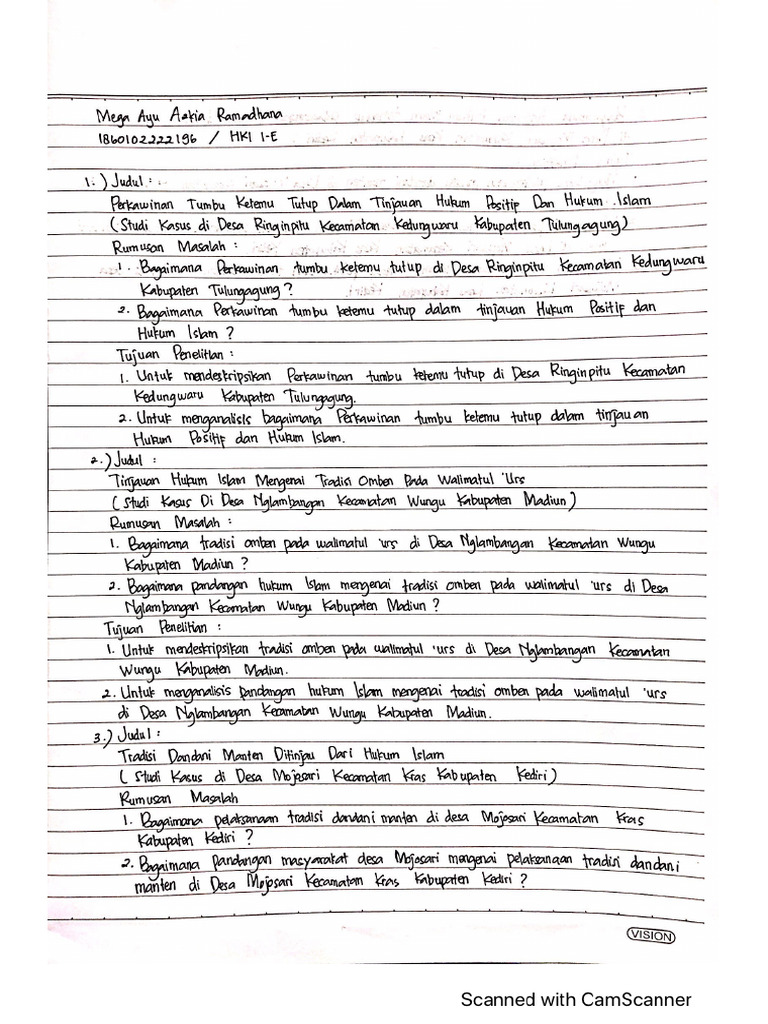 Mega Ayu Azkia Ramadhana
1860102222196 / HKI 1-E
1.) Judul :
Perkawinan Tumbu Ketemu Tutup Dalam Tinjauan Hukum Positif Dan Hukum Islam
(Studi Kasus di Desa Ringinpitu Kecamatan Kedungwaru Kabupaten Tulungagung)
Rumusan Masalah :
1. Bagaimana Perkawinan tumbu ketemu tutup di Desa Ringinpitu Kecamatan Kedungwaru
Kabupaten Tulungagung ?
2. Bagaimana Perkawinan tumbu ketemu tutup dalam tinjauan Hukum Positif dan
Hukum Islam ?
Tujuan Penelitian :
1. Untuk mendeskripsikan Perkawinan tumbu ketemu tutup di Desa Ringinpitu Kecamatan
Kedungwaru Kabupaten Tulungagung.
2. Untuk menganalisis bagaimana Perkawinan tumbu ketemu tutup dalam tinjauan
Hukum Positif dan Hukum Islam.
2.) Judul :
Tinjauan Hukum Islam Mengenai Tradisi Omben Pada Walimatul 'Urs
(Studi Kasus Di Desa Nglambangan Kecamatan Wungu Kabupaten Madiun)
Rumusan Masalah :
1. Bagaimana tradisi omben pada walimatul 'urs di Desa Nglambangan Kecamatan Wungu
Kabupaten Madiun ?
2. Bagaimana pandangan hukum Islam mengenai tradisi omben pada walimatul 'urs di Desa
Nglambangan Kecamatan Wungu Kabupaten Madiun ?
Tujuan Penelitian :
1. Untuk mendeskripsikan tradisi omben pada walimatul 'urs di Desa Nglambangan Kecamatan
Wungu Kabupaten Madiun.
2. Untuk menganalisis pandangan hukum Islam mengenai tradisi omben pada walimatul 'urs
di Desa Nglambangan Kecamatan Wungu Kabupaten Madiun.
3.) Judul :
Tradisi Dandani Manten Ditinjau Dari Hukum Islam
(Studi Kasus di Desa Mojosari Kecamatan Kras Kabupaten Kediri)
Rumusan Masalah
1. Bagaimana pelaksanaan tradisi dandani manten di desa Mojosari Kecamatan Kras
Kabupaten Kediri ?
2. Bagaimana pandangan masyarakat desa Mojosari mengenai pelaksanaan tradisi dandani
manten di Desa Mojosari Kecamatan Kras Kabupaten Kediri ?
VISION
Scanned with CamScanner